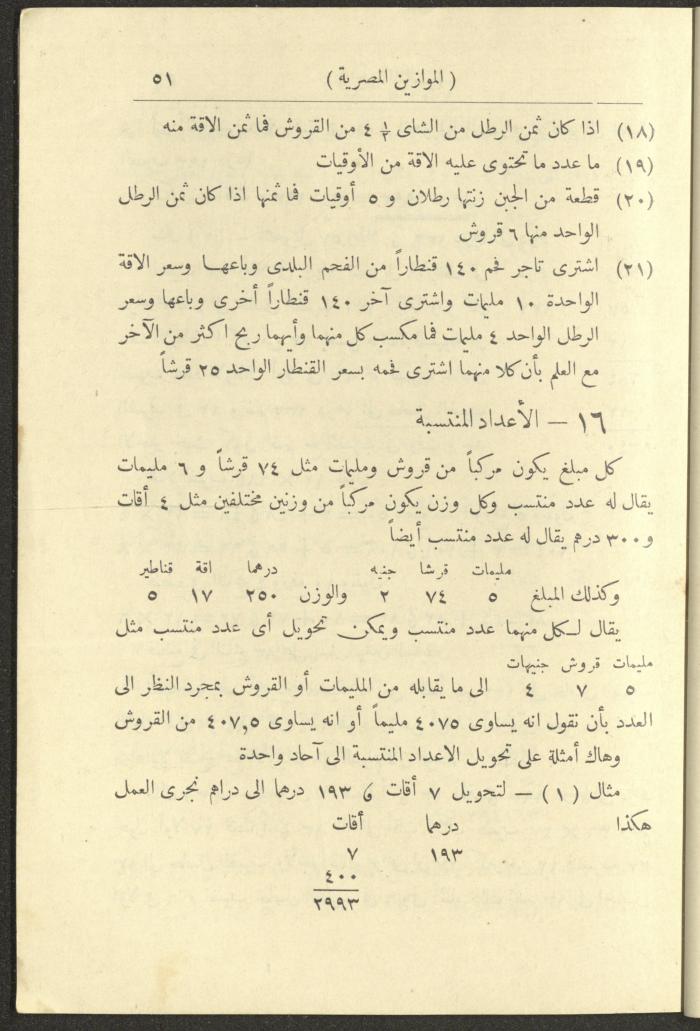 ( الموازين المصرية ) ٥١
(١٨) اذا كان ثمن الرطل من الشاى ٤ ١/٢ من القروش فما ثمن الاقة منه
(١٩) ما عدد ما تحتوى عليه الاقة من الأوقيات
(٢٠) قطعة من الجبن زنتها رطلان و ٥ أوقيات فما ثمنها اذا كان ثمن الرطل
الواحد منها ٦ قروش
(٢١) اشترى تاجر فحم ١٤٠ قنطاراً من الفحم البلدى وباعها وسعر الاقة
الواحدة ١٠ مليمات واشترى آخر ١٤٠ قنطاراً أخرى وباعها وسعر
الرطل الواحد ٤ مليمات فما مكسب كل منهما وأيهما ربح اكثر من الآخر
مع العلم بأن كلا منهما اشترى فحمه بسعر القنطار الواحد ٢٥ قرشاً
١٦ — الأعداد المنتسبة
كل مبلغ يكون مركباً من قروش ومليمات مثل ٧٤ قرشاً و ٦ مليمات
يقال له عدد منتسب وكل وزن يكون مركباً من وزنين مختلفين مثل ٤ أقات
و ٣٠٠ درهم يقال له عدد منتسب أيضاً
مليمات قرشا جنيه درهما اقة قناطير
وكذلك المبلغ ٥ ٧٤ ٢ والوزن ٢٥٠ ١٧ ٥
يقال لكل منهما عدد منتسب ويمكن تحويل أى عدد منتسب مثل
مليمات قروش جنيهات
٥ ٧ ٤ الى ما يقابله من المليمات أو القروش بمجرد النظر الى
العدد بأن نقول انه يساوى ٤٠٧٥ مليماً أو انه يساوى ٤٠٧,٥ من القروش
وهاك أمثلة على تحويل الاعداد المنتسبة الى آحاد واحدة
مثال (١) — لتحويل ٧ أقات و ١٩٣ درهما الى دراهم نجرى العمل
هكذا درهما أقات
١٩٣ ٧
٤٠٠
٢٩٩٣